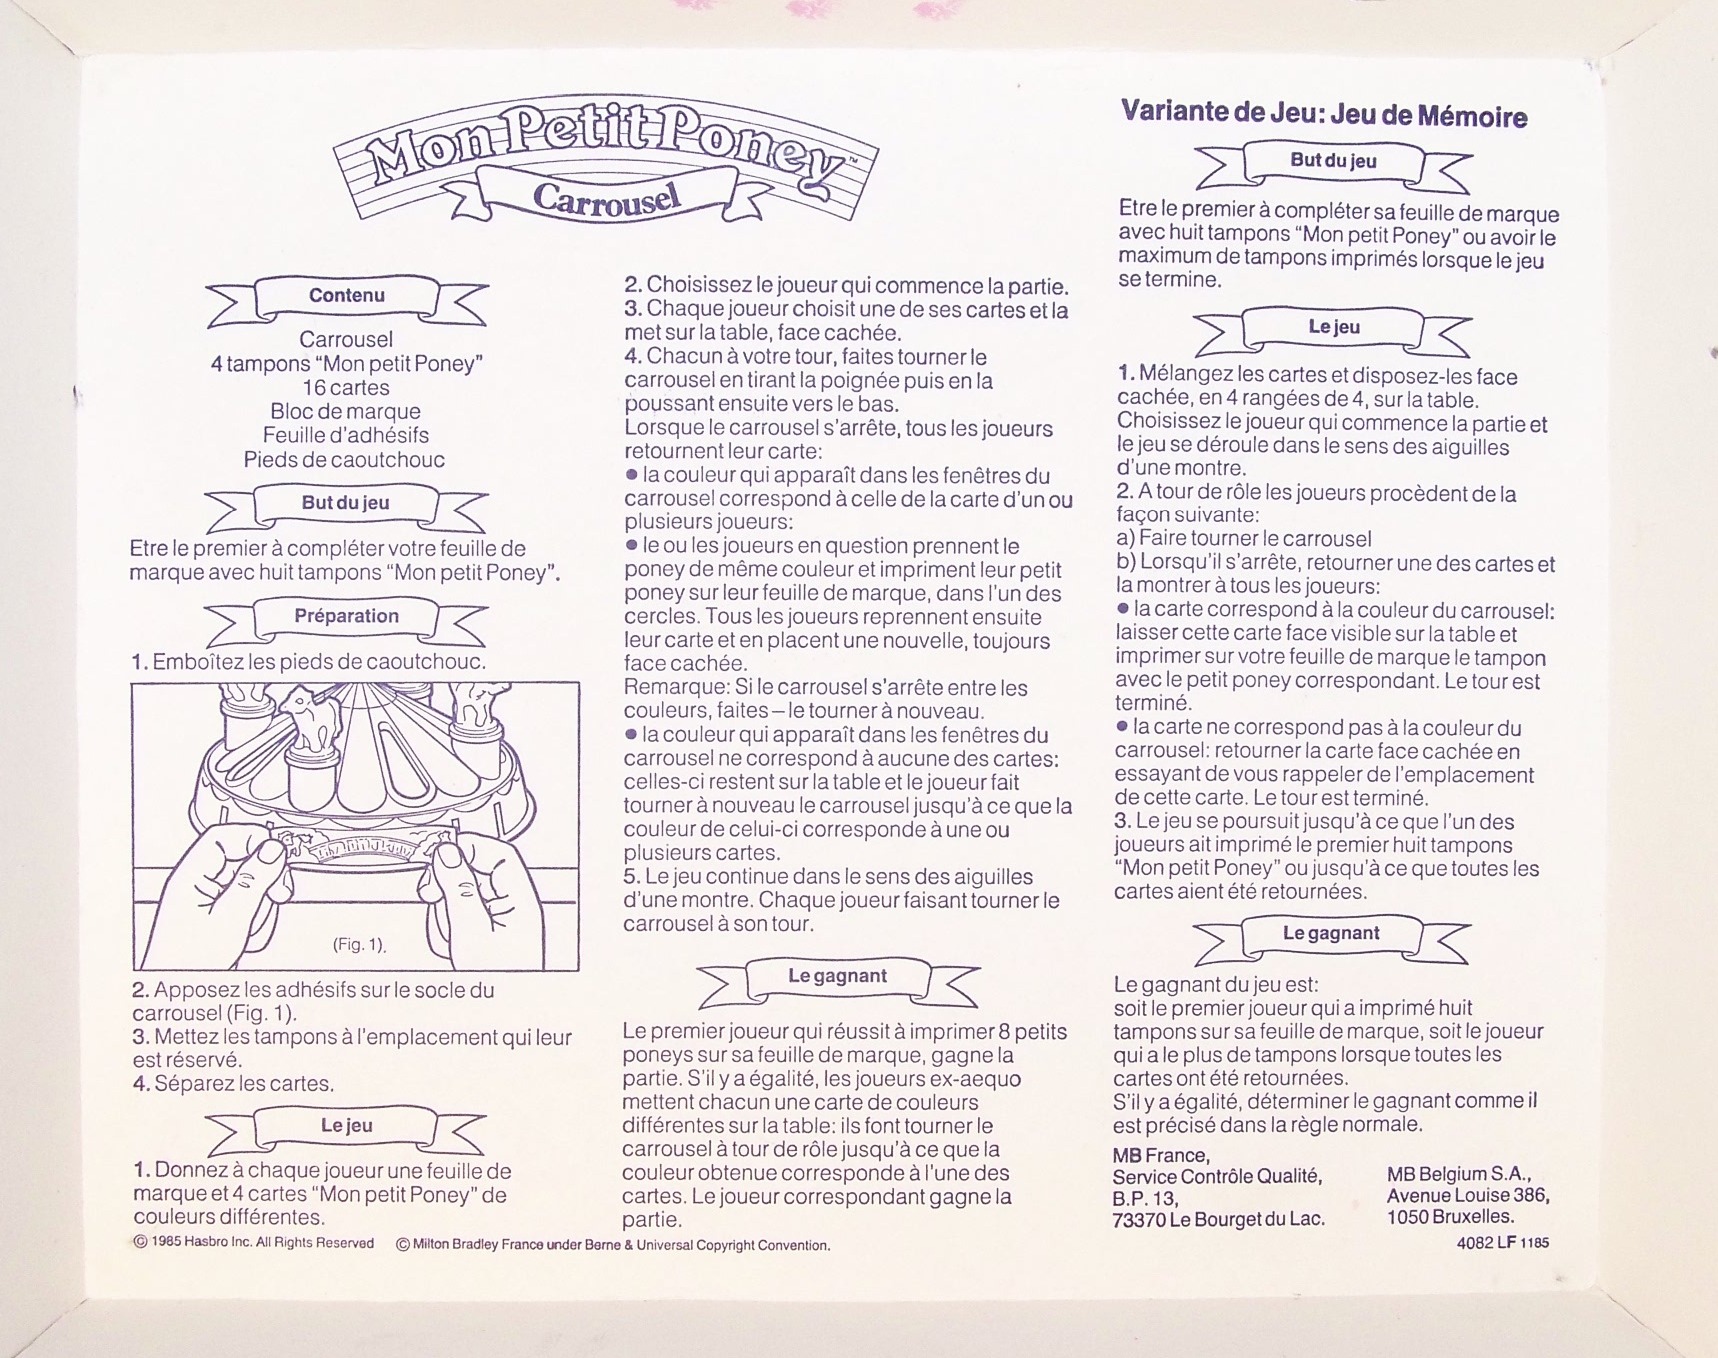 Mon Petit Poney™
Carrousel
Contenu
Carrousel
4 tampons “Mon petit Poney”
16 cartes
Bloc de marque
Feuille d'adhésifs
Pieds de caoutchouc
But du jeu
Etre le premier à compléter votre feuille de
marque avec huit tampons “Mon petit Poney”.
Préparation
1. Emboîtez les pieds de caoutchouc.
(Fig. 1).
2. Apposez les adhésifs sur le socle du
carrousel (Fig. 1).
3. Mettez les tampons à l'emplacement qui leur
est réservé.
4. Séparez les cartes.
Le jeu
1. Donnez à chaque joueur une feuille de
marque et 4 cartes “Mon petit Poney” de
couleurs différentes.
2. Choisissez le joueur qui commence la partie.
3. Chaque joueur choisit une de ses cartes et la
met sur la table, face cachée.
4. Chacun à votre tour, faites tourner le
carrousel en tirant la poignée puis en la
poussant ensuite vers le bas.
Lorsque le carrousel s'arrête, tous les joueurs
retournent leur carte:
● la couleur qui apparaît dans les fenêtres du
carrousel correspond à celle de la carte d'un ou
plusieurs joueurs:
● le ou les joueurs en question prennent le
poney de même couleur et impriment leur petit
poney sur leur feuille de marque, dans l'un des
cercles. Tous les joueurs reprennent ensuite
leur carte et en placent une nouvelle, toujours
face cachée.
Remarque: Si le carrousel s'arrête entre les
couleurs, faites – le tourner à nouveau.
● la couleur qui apparaît dans les fenêtres du
carrousel ne correspond à aucune des cartes:
celles-ci restent sur la table et le joueur fait
tourner à nouveau le carrousel jusqu'à ce que la
couleur de celui-ci corresponde à une ou
plusieurs cartes.
5. Le jeu continue dans le sens des aiguilles
d'une montre. Chaque joueur faisant tourner le
carrousel à son tour.
Le gagnant
Le premier joueur qui réussit à imprimer 8 petits
poneys sur sa feuille de marque, gagne la
partie. S'il y a égalité, les joueurs ex-aequo
mettent chacun une carte de couleurs
différentes sur la table: ils font tourner le
carrousel à tour de rôle jusqu'à ce que la
couleur obtenue corresponde à l'une des
cartes. Le joueur correspondant gagne la
partie.
Variante de Jeu: Jeu de Mémoire
But du jeu
Etre le premier à compléter sa feuille de marque
avec huit tampons “Mon petit Poney” ou avoir le
maximum de tampons imprimés lorsque le jeu
se termine.
Le jeu
1. Mélangez les cartes et disposez-les face
cachée, en 4 rangées de 4, sur la table.
Choisissez le joueur qui commence la partie et
le jeu se déroule dans le sens des aiguilles
d'une montre.
2. A tour de rôle les joueurs procèdent de la
façon suivante:
a) Faire tourner le carrousel
b) Lorsqu'il s'arrête, retourner une des cartes et
la montrer à tous les joueurs:
● la carte correspond à la couleur du carrousel:
laisser cette carte face visible sur la table et
imprimer sur votre feuille de marque le tampon
avec le petit poney correspondant. Le tour est
terminé.
● la carte ne correspond pas à la couleur du
carrousel: retourner la carte face cachée en
essayant de vous rappeler de l'emplacement
de cette carte. Le tour est terminé.
3. Le jeu se poursuit jusqu'à ce que l'un des
joueurs ait imprimé le premier huit tampons
“Mon petit Poney” ou jusqu'à ce que toutes les
cartes aient été retournées.
Le gagnant
Le gagnant du jeu est:
soit le premier joueur qui a imprimé huit
tampons sur sa feuille de marque, soit le joueur
qui a le plus de tampons lorsque toutes les
cartes ont été retournées.
S'il y a égalité, déterminer le gagnant comme il
est précisé dans la règle normale.
MB France,
Service Contrôle Qualité,
B.P. 13,
73370 Le Bourget du Lac.
MB Belgium S.A.,
Avenue Louise 386,
1050 Bruxelles.
© 1985 Hasbro Inc. All Rights Reserved © Milton Bradley France under Berne & Universal Copyright Convention.
4082 LF 1185